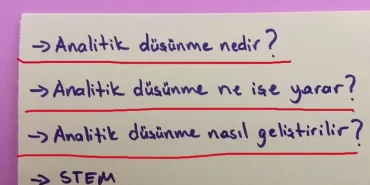 → Analitik düşünme nedir?
→ Analitik düşünme ne işe yarar?
→ Analitik düşünme nasıl geliştirilir?
→ STEM